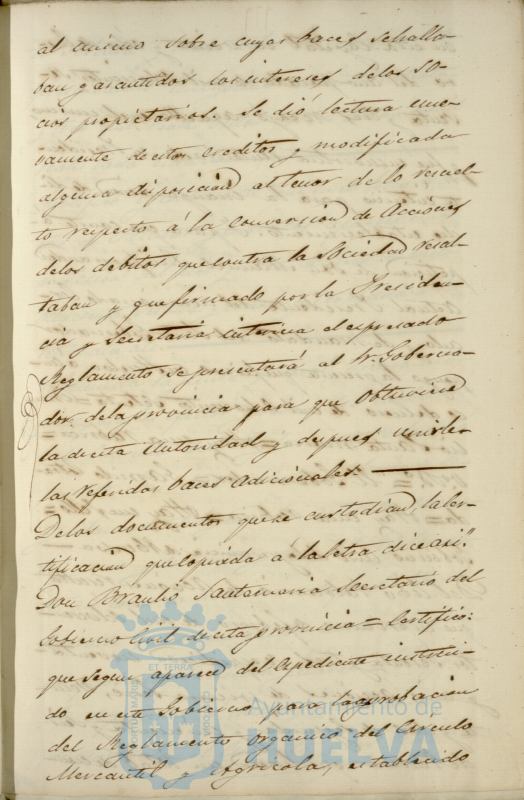 al mismo sobre cuyas baces se halla-
ban garantidos los intereses de los so-
cios propietarios. Se dió lectura nue-
vamente de estos creditos y modificada
alguna disposicion al tenor de lo resuel-
to respecto á la conversion de Acciones
de los debitos que contra la Sociedad resal-
taban y que firmado por la Presiden-
cia y Secretaria interina el espresado
Reglamento se presentará al Sr. Goberna-
dor de la provincia para que obtuviese
la de esta Autoridad y despues unirle
las referidas baces adicionales.
De los documentos que se custodian, la Cer-
tificacion que copiada á la letra dice asi."
Don Braulio Santamaria Secretario del
Gobierno Civil de esta provincia = Certifico:
que segun aparece del espediente instrui-
do en este Gobierno para la aprobacion
del Reglamento organico del Circulo
Mercantil y Agricola, establecido
Ayuntamiento de
HUELVA